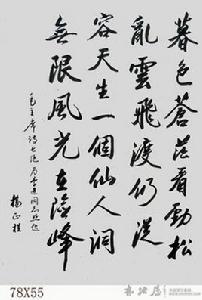 暮色蒼茫看勁松
亂雲飛渡仍從
容天生一個仙人洞
無限風光在險峰
毛主席詩七絕為李進同志題
楊正
78X55